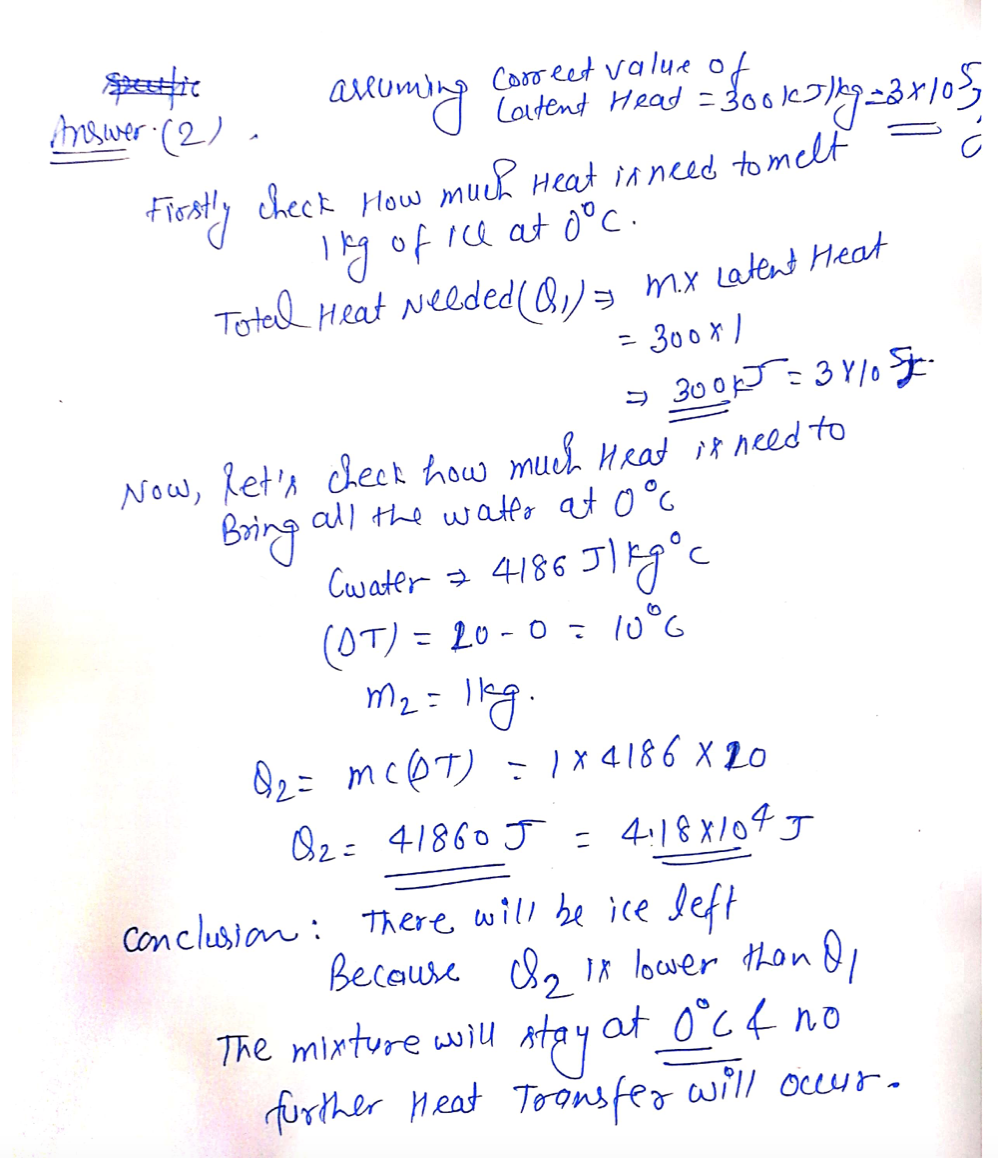 assuming Correct value of
Latent Head = 300 kJ/kg = 3x10⁵ J
Answer (2).
Firstly check How much Heat is need to melt
1 kg of ice at 0°C.
Total Heat Needed (Q₁) ⇒ m.x Latent Heat
= 300 x 1
⇒ 300 kJ = 3x10⁵ J.
Now, Let's check how much Heat is need to
Bring all the water at 0°C
Cwater ⇒ 4186 J/kg°C
(DT) = 20 - 0 = 10°C
m₂ = 1kg.
Q₂ = mc(DT) = 1 x 4186 x 20
Q₂ = 41860 J = 4.18x10⁴ J
Conclusion : There will be ice left
Because Q₂ is lower than Q₁
The mixture will stay at 0°C & no
further Heat Transfer will occur.